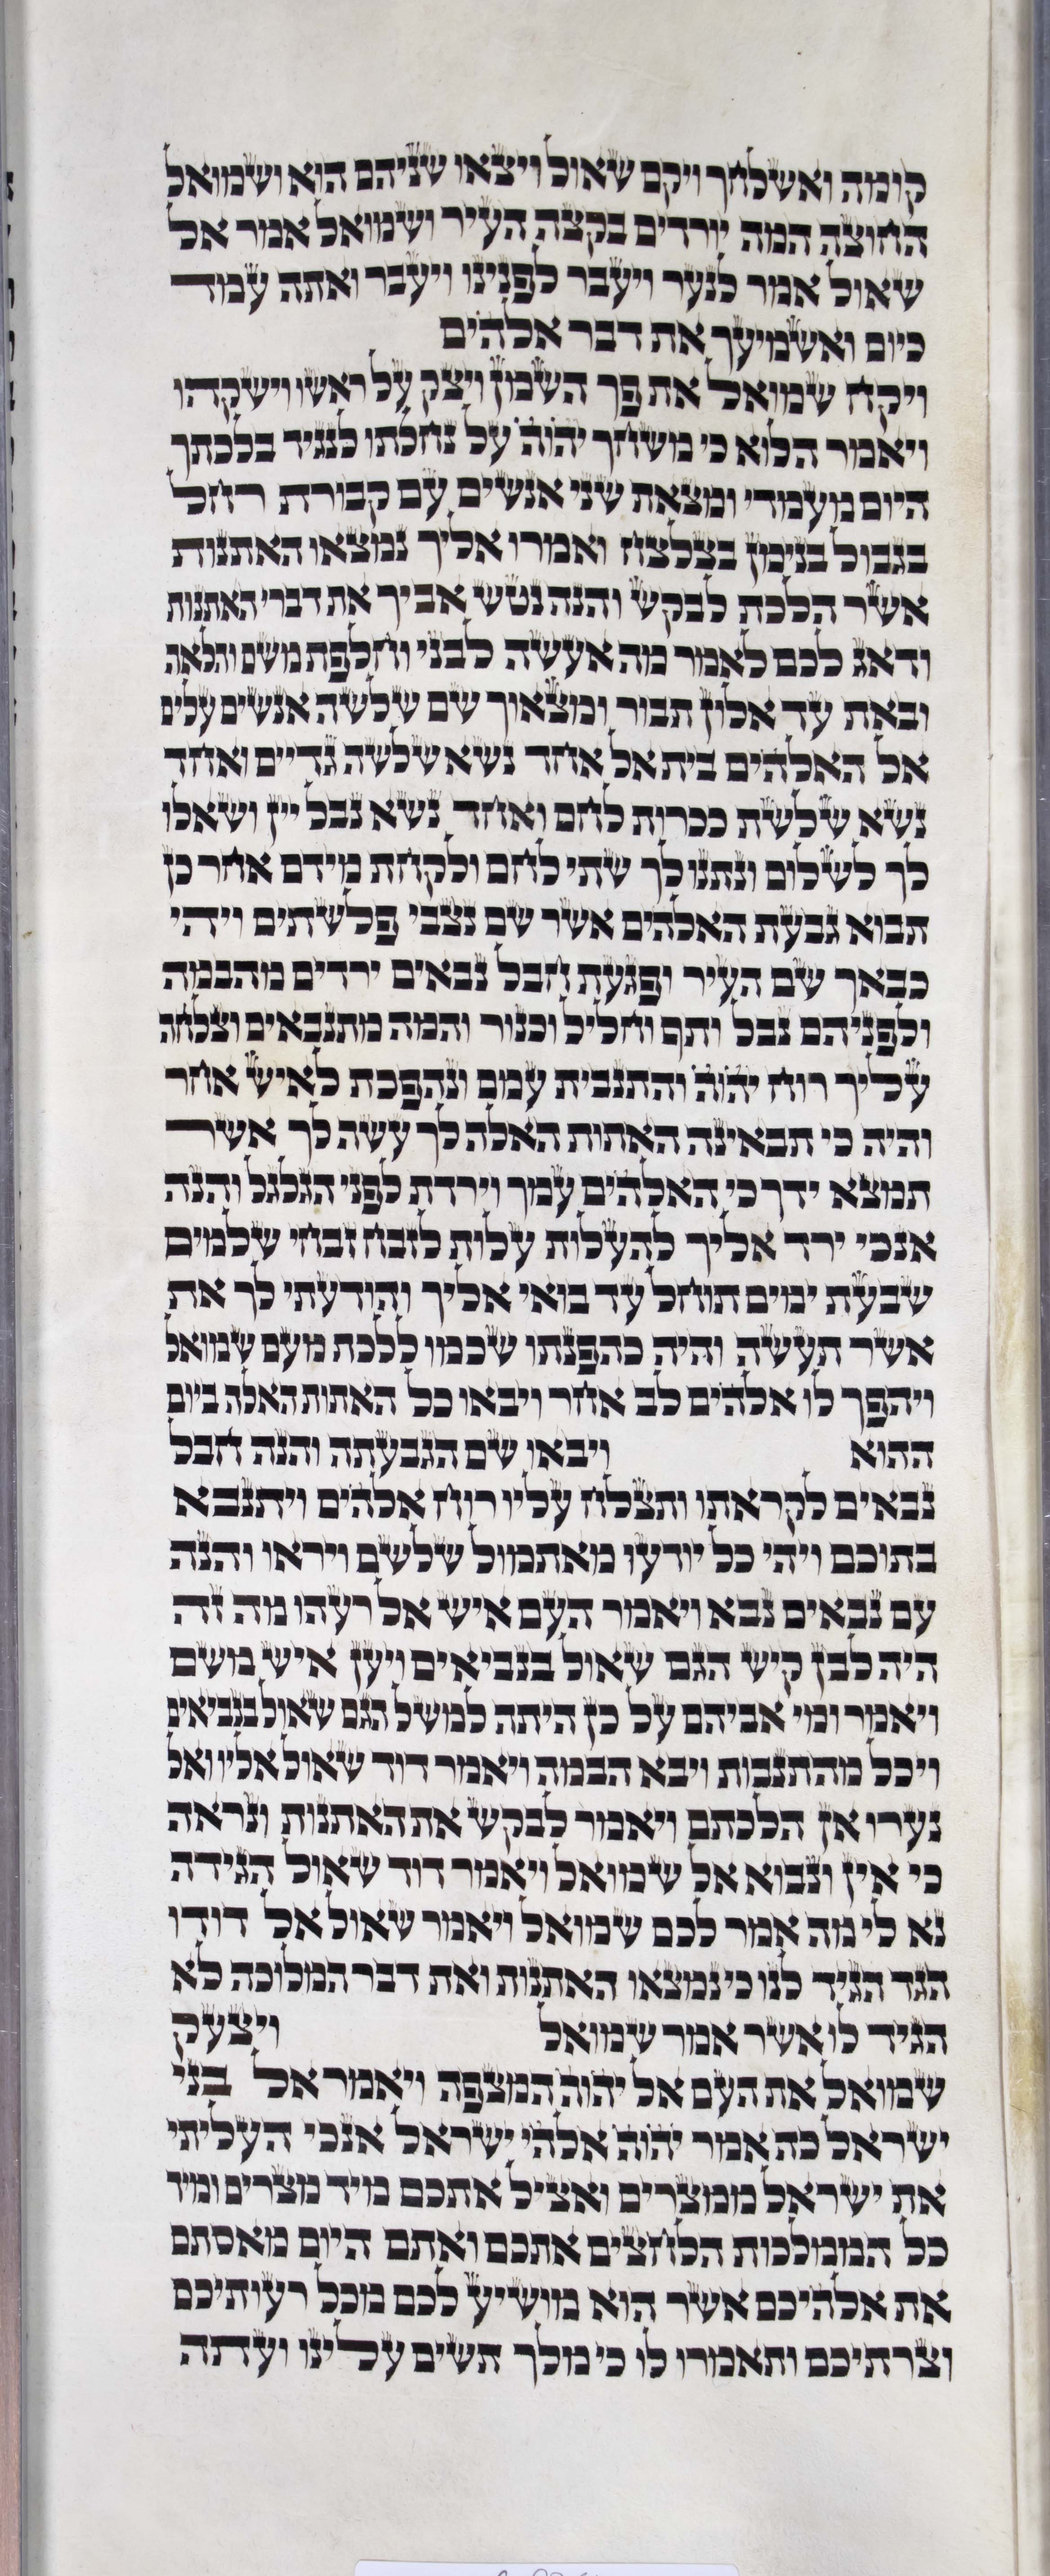 קומה ואשלחך ויקם שאול ויצאו שניהם הוא ושמואל
החוצה המה יורדים בקצה העיר ושמואל אמר אל
שאול אמר לנער ויעבר לפנינו ויעבר ואתה עמוד
כיום ואשמיעך את דבר אלהים
ויקח שמואל את פך השמן ויצק על ראשו וישקהו
ויאמר הלוא כי משחך יהוה על נחלתו לנגיד בלכתך
היום מעמדי ומצאת שני אנשים עם קבורת רחל
בגבול בנימן בצלצח ואמרו אליך נמצאו האתנות
אשר הלכת לבקש והנה נטש אביך את דברי האתנות
ודאג לכם לאמר מה אעשה לבני וחלפת משם והלאה
ובאת עד אלון תבור ומצאוך שם שלשה אנשים עלים
אל האלהים בית אל אחד נשא שלשה גדיים ואחד
נשא שלשת ככרות לחם ואחד נשא נבל יין ושאלו
לך לשלום ונתנו לך שתי לחם ולקחת מידם אחר כן
תבוא גבעת האלהים אשר שם נצבי פלשתים ויהי
כבאך שם העיר ופגעת חבל נבאים ירדים מהבמה
ולפניהם נבל ותף וחליל וכנור והמה מתנבאים וצלחה
עליך רוח יהוה והתנבית עמם ונהפכת לאיש אחר
והיה כי תבאינה האתות האלה לך עשה לך אשר
תמצא ידך כי האלהים עמך וירדת לפני הגלגל והנה
אנכי ירד אליך להעלות עלות לזבח זבחי שלמים
שבעת ימים תוחל עד בואי אליך והודעתי לך את
אשר תעשה והיה כהפנתו שכמו ללכת מעם שמואל
ויהפך לו אלהים לב אחר ויבאו כל האתות האלה ביום
ההוא ויבאו שם הגבעתה והנה חבל
נבאים לקראתו ותצלח עליו רוח אלהים ויתנבא
בתוכם ויהי כל יודעו מאתמול שלשם ויראו והנה
עם נבאים נבא ויאמר העם איש אל רעהו מה זה
היה לבן קיש הגם שאול בנביאים ויען איש משם
ויאמר ומי אביהם על כן היתה למשל הגם שאול בנביאים
ויכל מהתנבות ויבא הבמה ויאמר דוד שאול אליו ואל
נערו אן הלכתם ויאמר לבקש את האתנות ונראה
כי אין ונבוא אל שמואל ויאמר דוד שאול הגידה
נא לי מה אמר לכם שמואל ויאמר שאול אל דודו
הגד הגיד לנו כי נמצאו האתנות ואת דבר המלוכה לא
הגיד לו אשר אמר שמואל ויצעק
שמואל את העם אל יהוה המצפה ויאמר אל בני
ישראל כה אמר יהוה אלהי ישראל אנכי העליתי
את ישראל ממצרים ואציל אתכם מיד מצרים ומיד
כל הממלכות הלחצים אתכם ואתם היום מאסתם
את אלהיכם אשר הוא מושיע לכם מכל רעותיכם
וצרתיכם ותאמרו לו כי מלך תשים עלינו ועתה